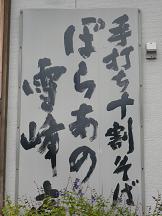 手打ち十割そば
ぼらあの
雪峰